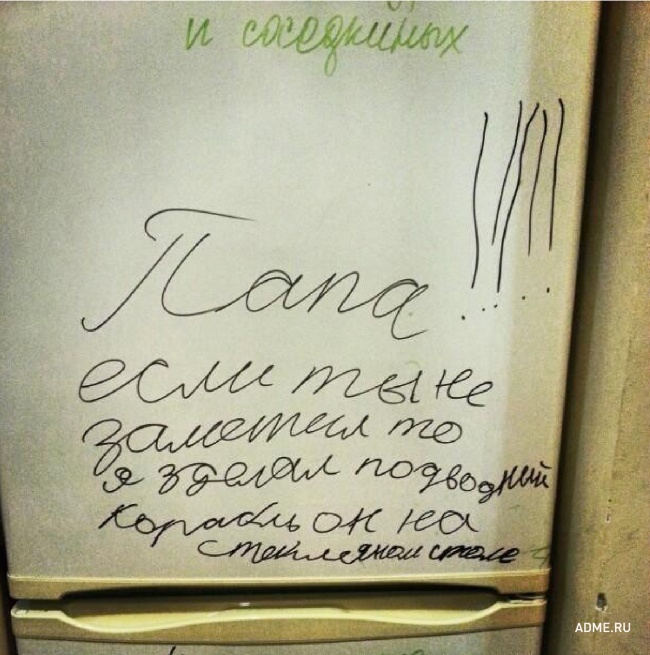 и соседкиных
Папа !!!!!
если ты не
заметил то
я зделал подводный
корабль он на
стеклянном столе
ADME.RU